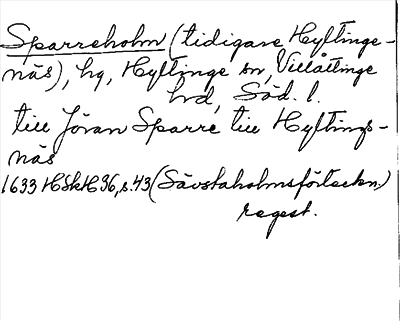 Sparreholm (tidigare Hyltinge-
näs), hg, Hyltinge sn, Villåttinge
hrd, Söd. l.
till Jöran Sparre till Hyltings-
näs
1633 HSkH36, s. 43 (Sävstaholmsförteckn.)
regest.